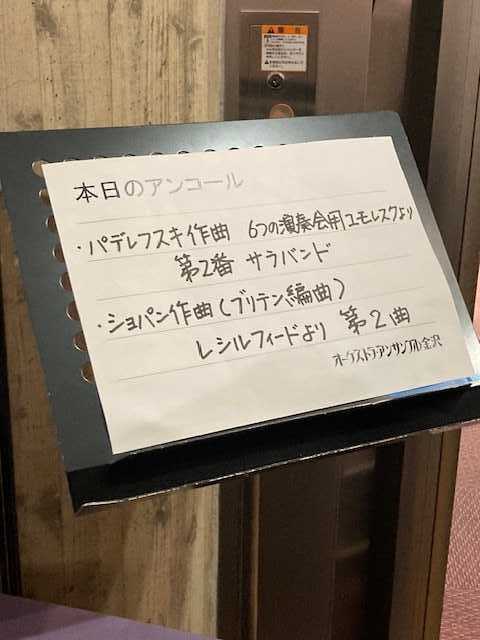 本日のアンコール
・パデレフスキ作曲 6つの演奏会用ユモレスクより
第2番 サラバンド
・ショパン作曲(ブリテン編曲)
レシルフィードより 第2曲
オーケストラ・アンサンブル金沢